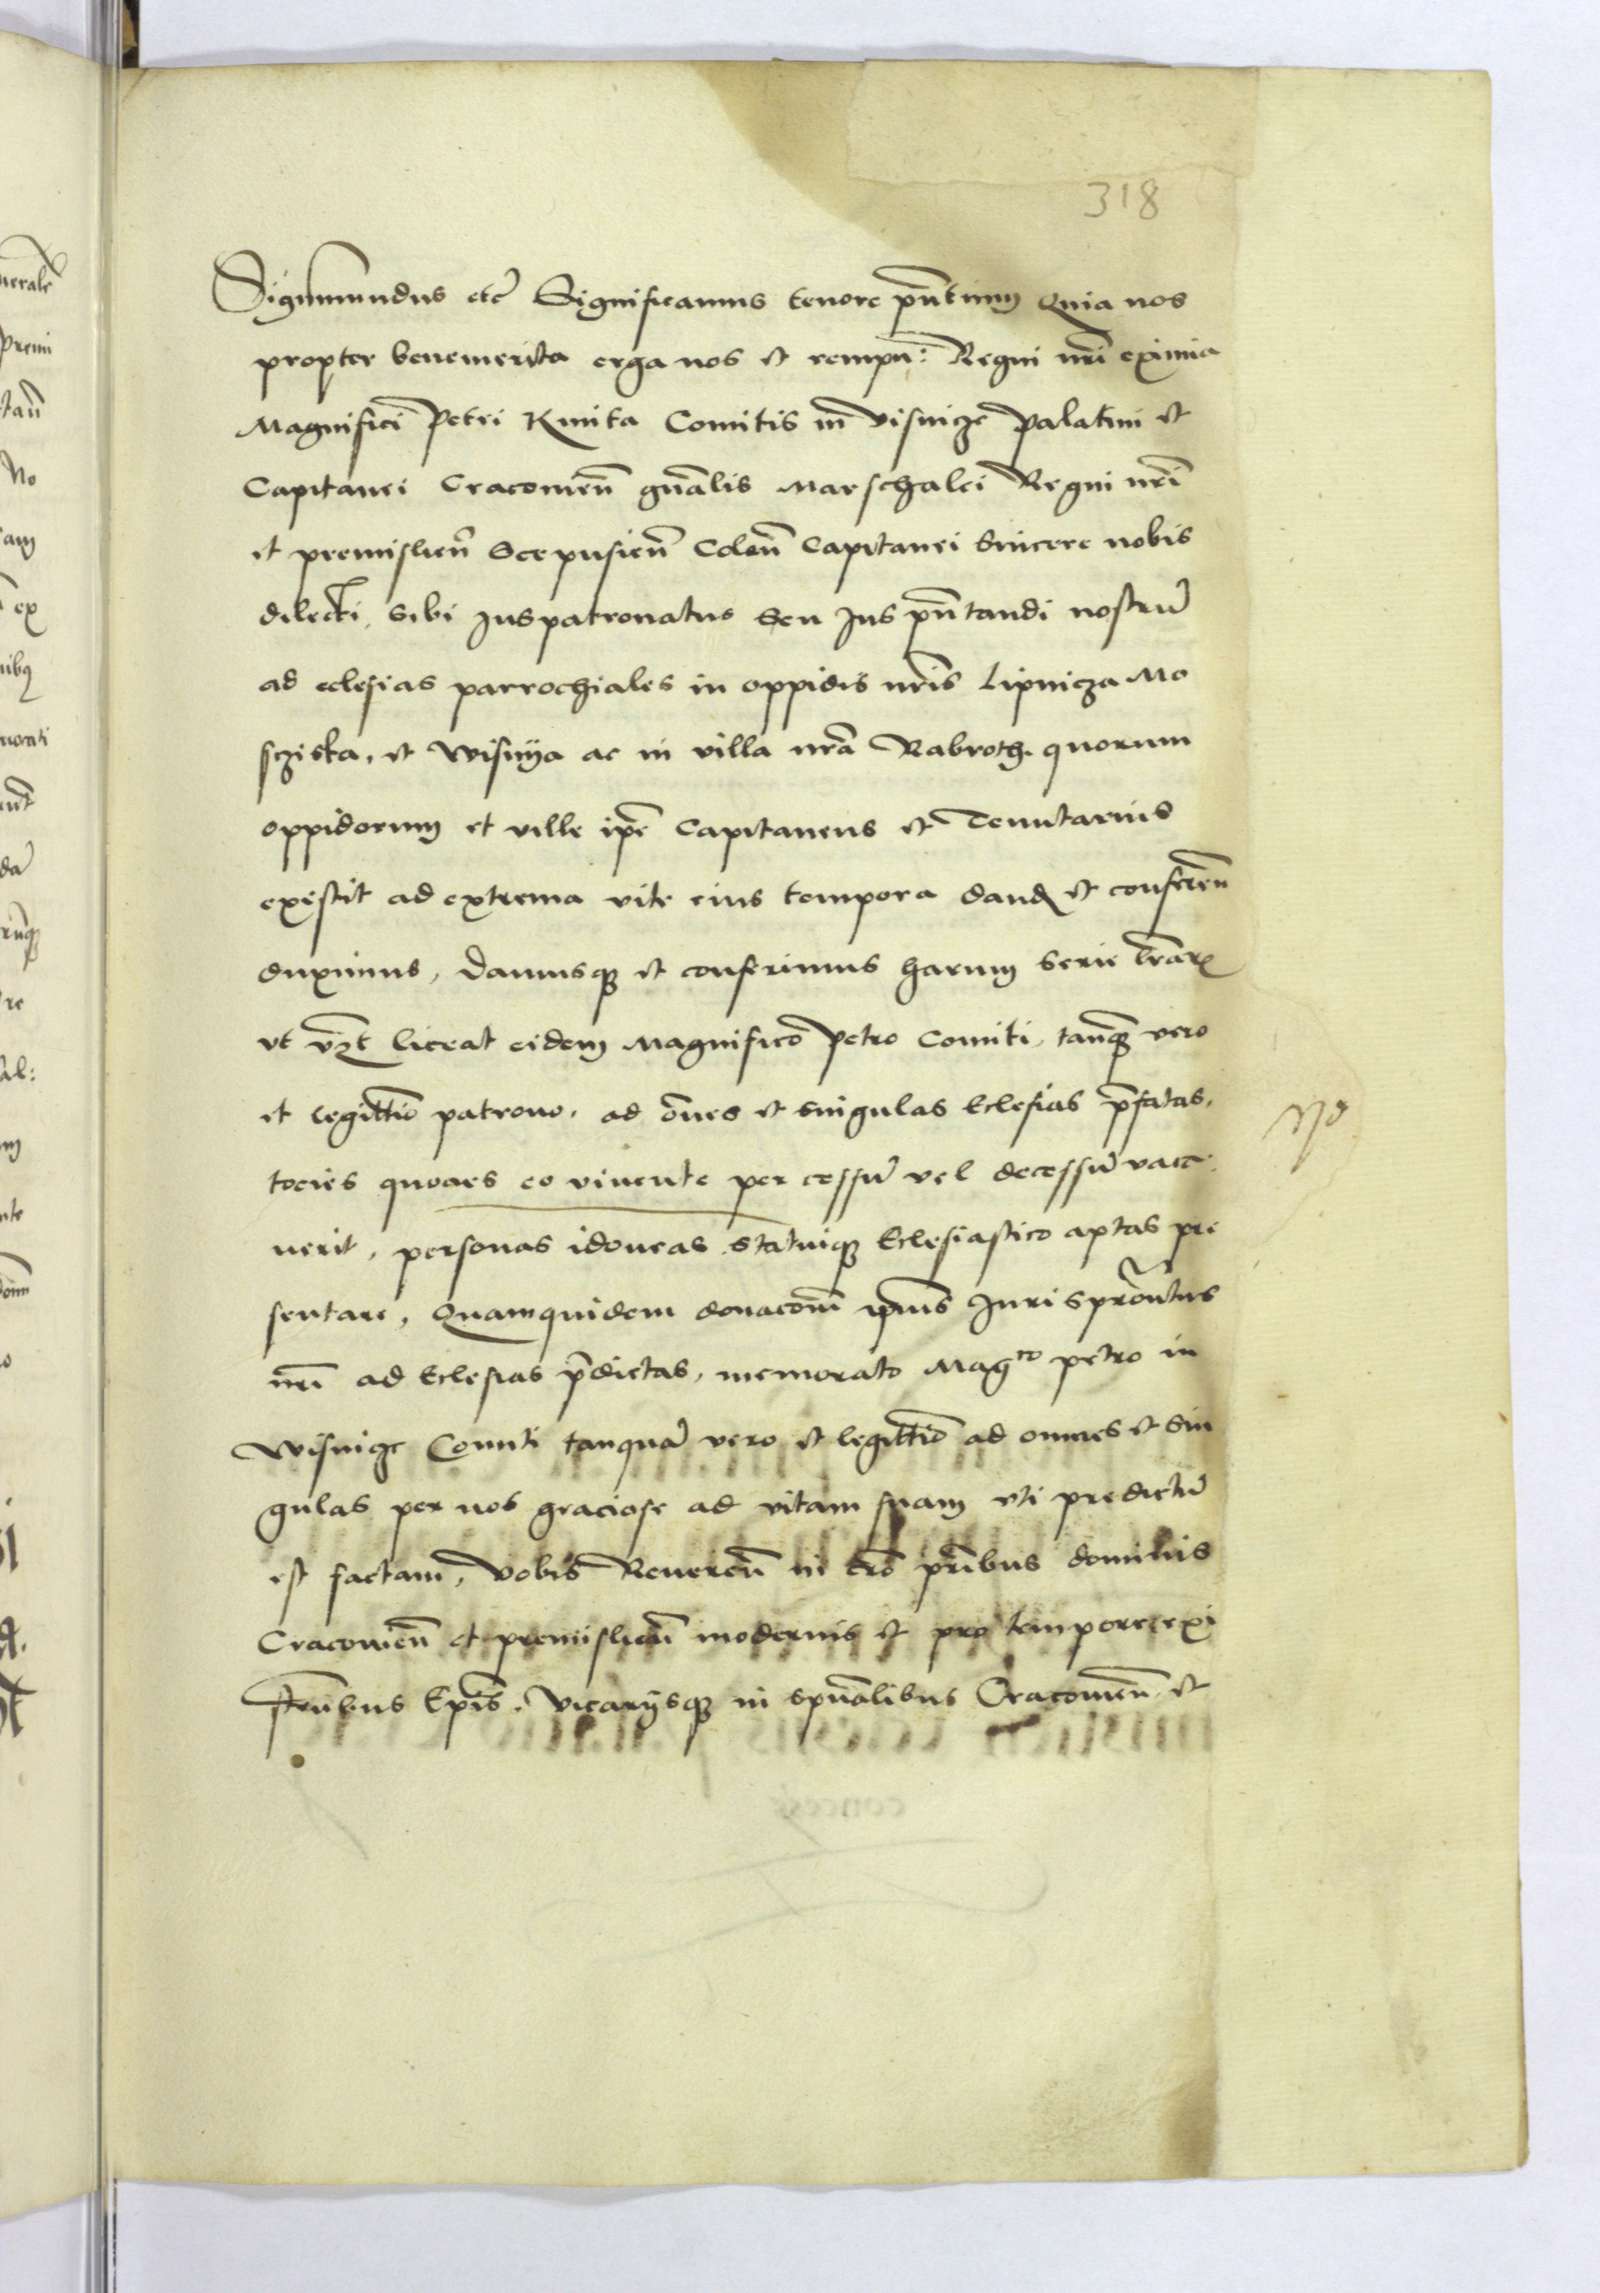 318
Sigismundus etc̃ Significamus tenore pñtium Quia nos
propter benemerita erga nos et rempu: Regni nr̃i eximia
Magnifici Petri Kmita Comitis in Visnicze Palatini et
Capitanei Cracouieñ gñalis Marschalci Regni nr̃i
et premislieñ Scepusieñ Coleñ Capitanei Sincere nobis
dilecti, sibi Juspatronatus Seu Jus pñtandi nostrũ
ad eclesias parrochiales in oppidis nr̃is Lipnicza Mo
scziska, et Wisnya ac in villa nr̃a Rabroth. quorum
oppidorum et ville ip̃e Capitaneus et Tenutarius
existit ad extrema vite eius tempora dand et conferen̄
duximus, Damusq et conferimus harum serie lr̃ar
vt vzt liceat eidem Magnifico Petro Comiti, tanq̃ vero
et legittio patrono. ad om̃es et singulas Eclesias p̃fatas,
tocies quocies eo viuente per cessũ vel decessũ vaca
uerit, personas idoneas statuiq Eclesiastico aptas pre
sentare, Quamquidem donacõm ip̃ius Jurispr̃onatus
nr̃i ad Eclesias p̃dictas, memorato Mag^co petro in
Wisnicze Comiti tanquã vero et legittio ad omnes et sin
gulas per nos graciose ad vitam suam vti predictũ
est factam, Vobis Reuereñ in Xr̃o pr̃ibus dominis
Cracouieñ et premislieñ modernis et pro tempore exi
steñbus Ep̃is. Vicarijsq in sp̃ualibus Cracouieñ et